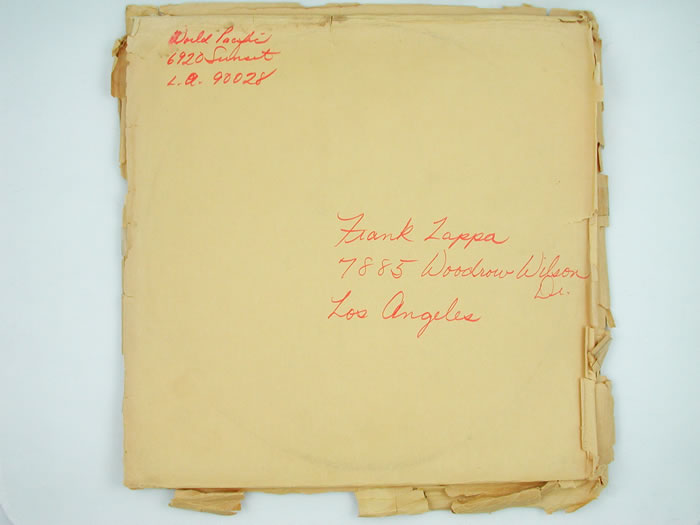 World Pacific
6920 Sunset
L.A. 90028
Frank Zappa
7885 Woodrow Wilson
Dr.
Los Angeles